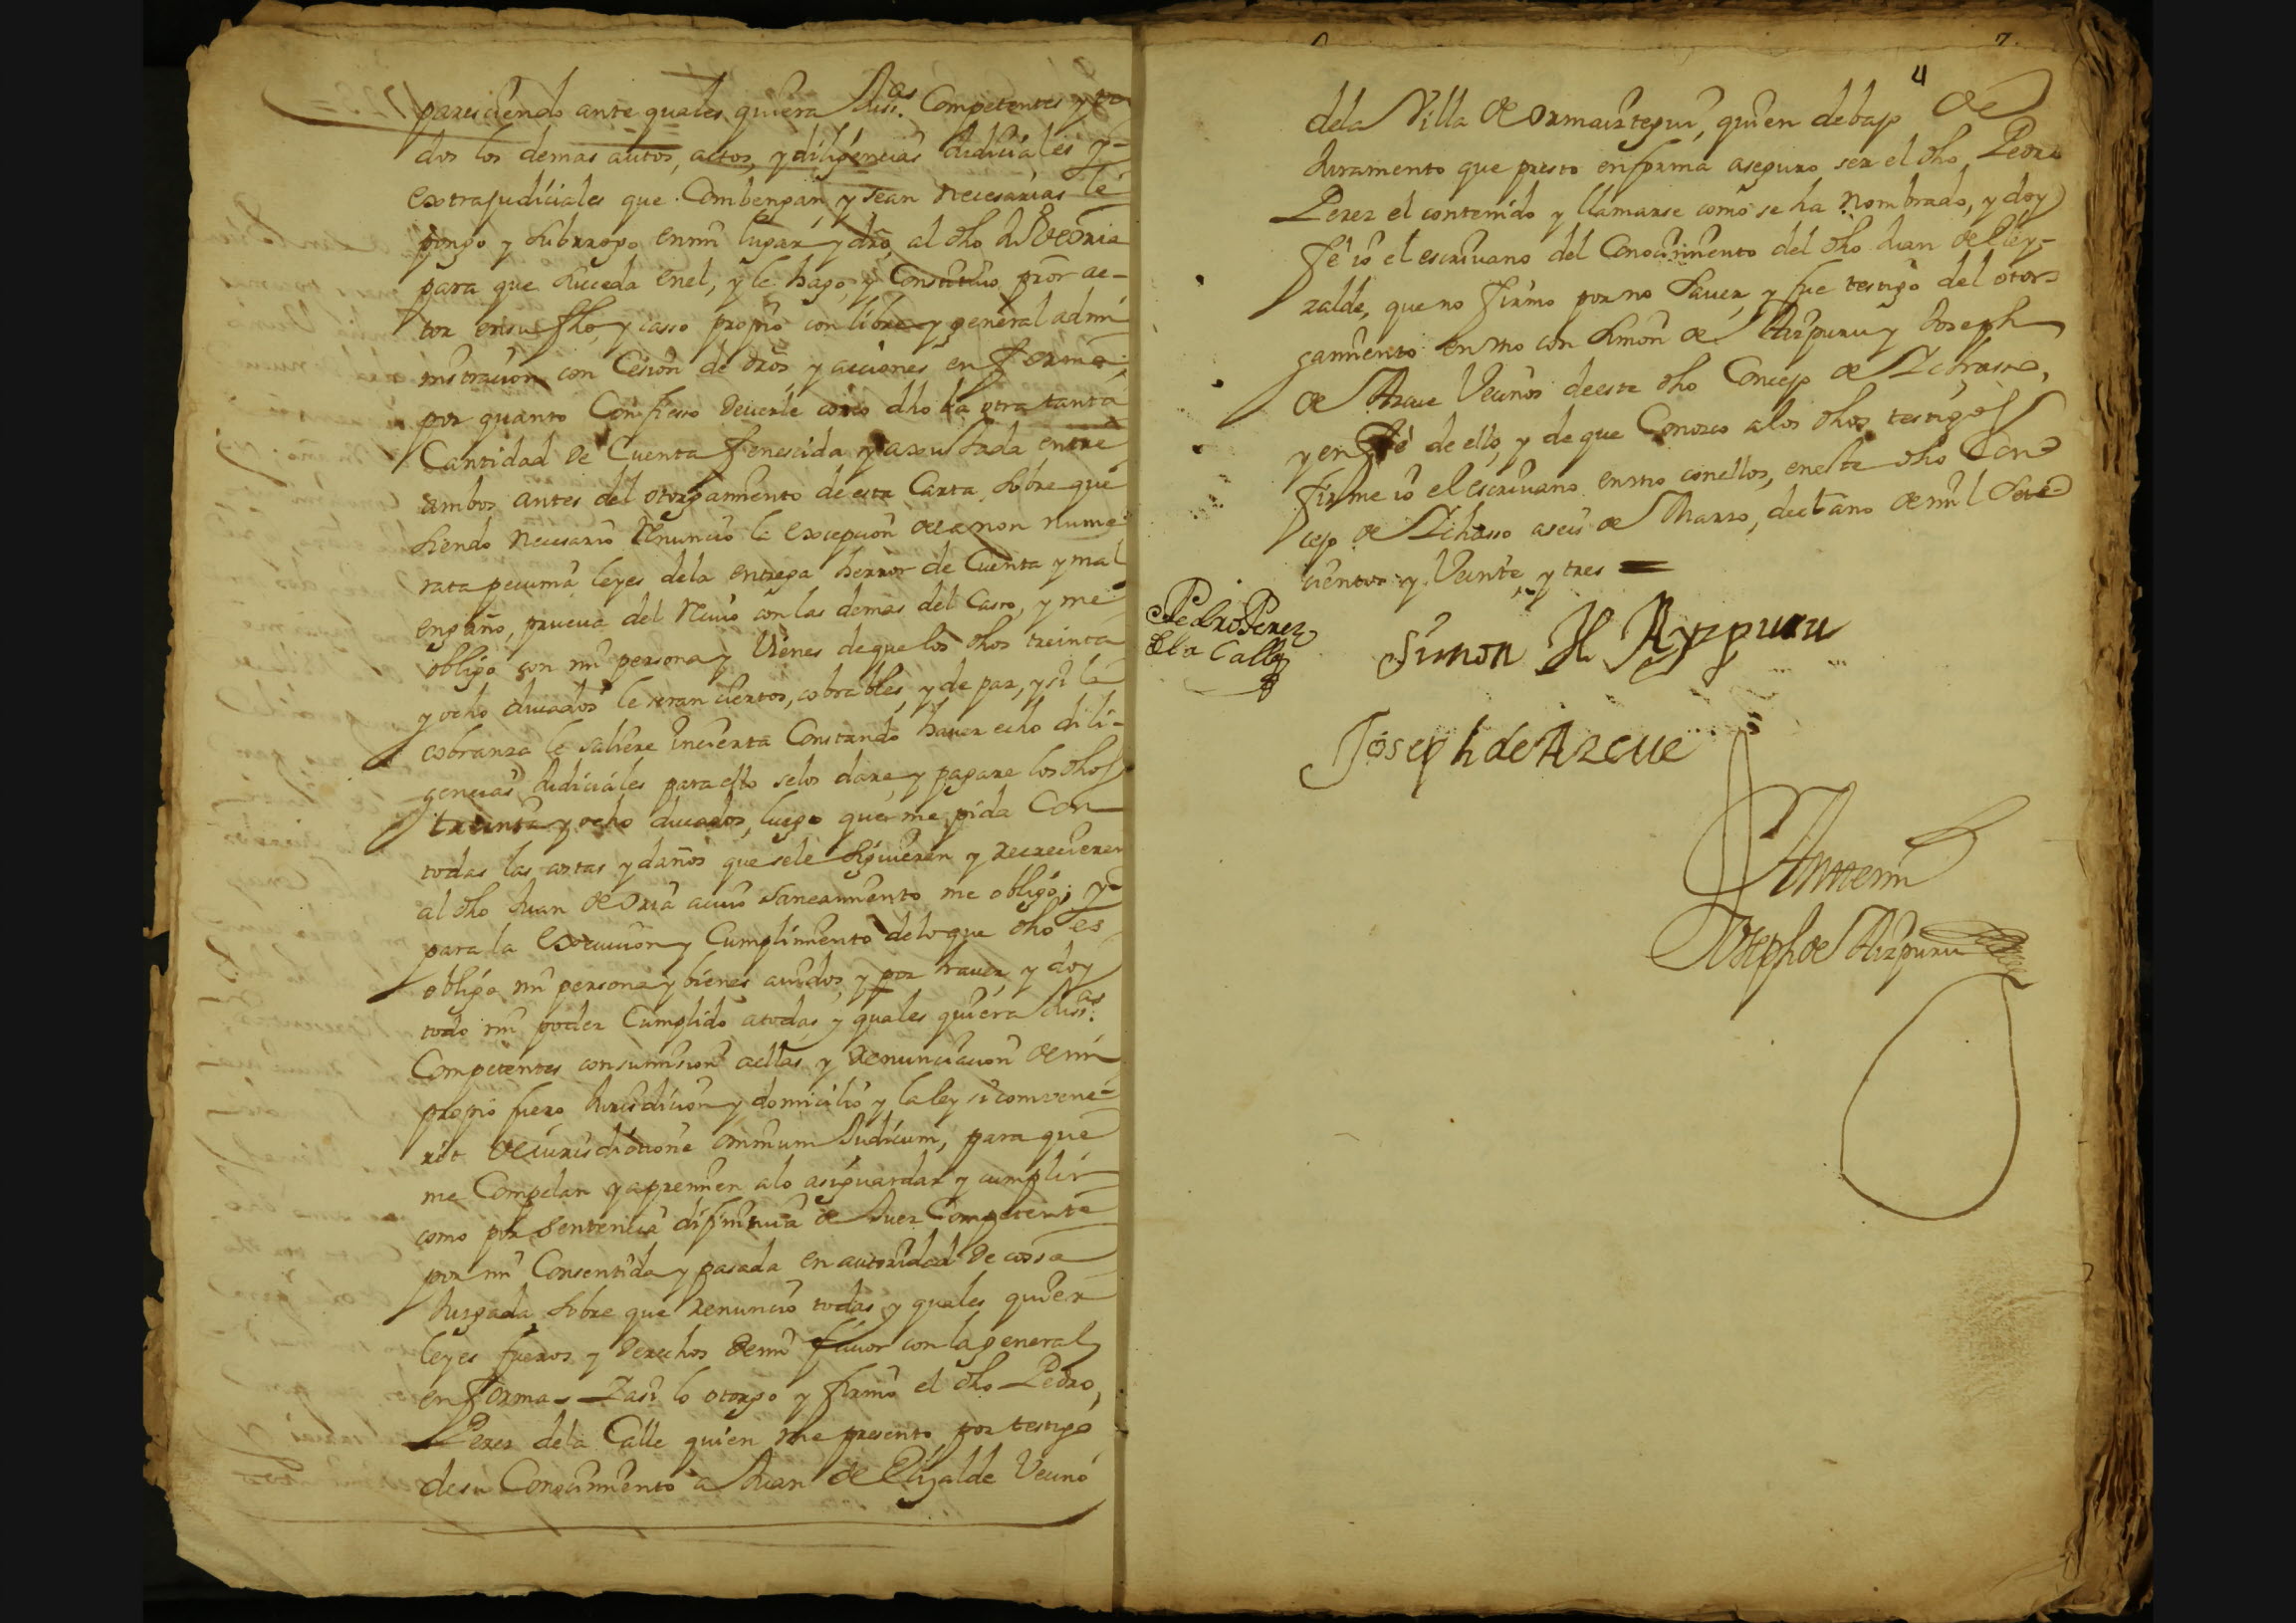 paresciendo ante quales quiera Juss.as Competentes y to
dos los demas autos, actos, y diligencias Judiciales y
extrajudiciales que Combengan, y sean necesarias le
pongo y subrrogo en mi lugar y dro, al dho Ju.º de Oria
para que suceda en el, y le hago, y Constituio pror ac-
tor en su fho, y casso propio con libre y general admi
nistracion con Cesion de dros y acciones en forma,
por quanto Confiesso Deverle como dho ba otra tanta
Cantidad de Cuenta fenescida y axustada entre
ambos antes del otorgamiento de esta Carta, sobre que
siendo necesario Renuncio la excepcion de la non nume
rata pecunia leyes dela entrega herror de Cuenta y mal
engaño, prueva del Recivo con las demas del Casso, y me
obligo con mi persona y vienes de que los dhos treinta
y ocho ducados le seran ciertos, cobrables, y de paz, y si la
cobranza le saliere Incierta Constando haver echo dili-
gencias Judiciales para ello selos dare y pagare los dhos
treinta y ocho ducados, luego que me pida Con
todas las costas y daños que sele siguieren y recrecieren
al dho Juan de Oria acuio saneamiento me obligo; y
para la execucion y Cumplimiento delo que dho es
obligo mi persona y bienes avidos, y por haver, y doy
todo mi poder Cumplido atodas y quales quiera Juss.as
Competentes con sumision aellas y Renunciacion de mi
propio fuero Jurisdicion y domicilio y la ley si convene-
rit de iurisdictione omnium Judicum, para que
me Compelan y apremien alo asi guardar y cumplir
como por sentencia difinitiva de Juez Competente
por mi Consentida y pasada en autoridad de cossa
Juzgada sobre que renuncio todas y quales quier
leyes fueros y derechos de mi favor con la general
en forma - Y asi lo otorgo y firmo el dho Pedro
Perez dela Calle quien me presento por testigo
de su Conocimiento a Juan de Elizalde Vecino
7.
4
dela Villa de Ormaiztegui, quien debajo de
Juramento que presto en forma aseguro ser el dho Pedro
Perez el contenido y llamarse como se ha nombrado, y doy
fe io el escrivano del Conocimiento del dho Juan de Eley-
zalde, que no firmo por no saver, y fue testigo del otor-
gamiento en vno con Simon de Aizpuru y Joseph
de Azcue Vecinos de este dho Concejo de Ichasso,
y en fe de ello, y de que Conozco alos dhos testigos
firme io el escrivano en vno con ellos, en este dho Con
cejo de Ichasso a seis de Marzo, de este año de mil Sete
cientos y Veinte, y tres =
Pedro Perez
de la Calle
Simon de Ayzpuru
Joseph de Azcue
Ante mi
Joseph de Aizpuru